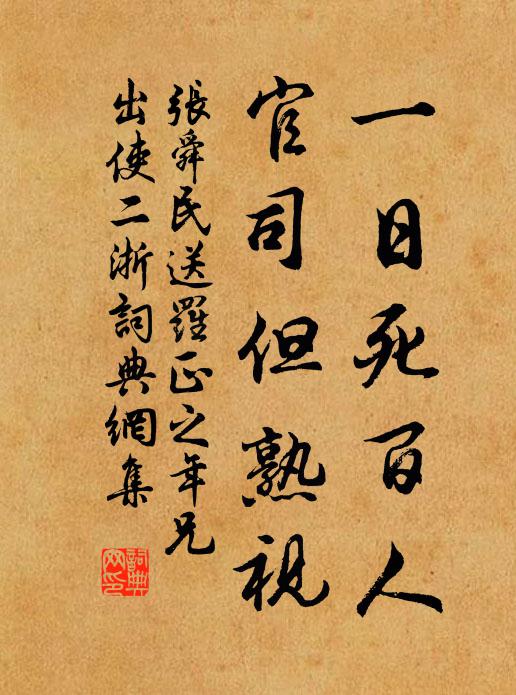 一日死百人
官司但熟視
張舜民送羅正之年兄
出使二浙詞典網集
詞典網印